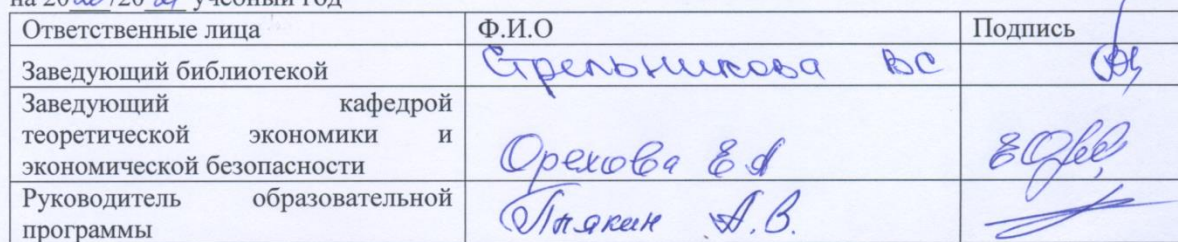 на 20 /20 учебный год
Ответственные лица Ф.И.О Подпись
Заведующий библиотекой Стрельникова ВС
Заведующий кафедрой
теоретической экономики и
экономической безопасности Орехова Е А
Руководитель образовательной
программы А.В.